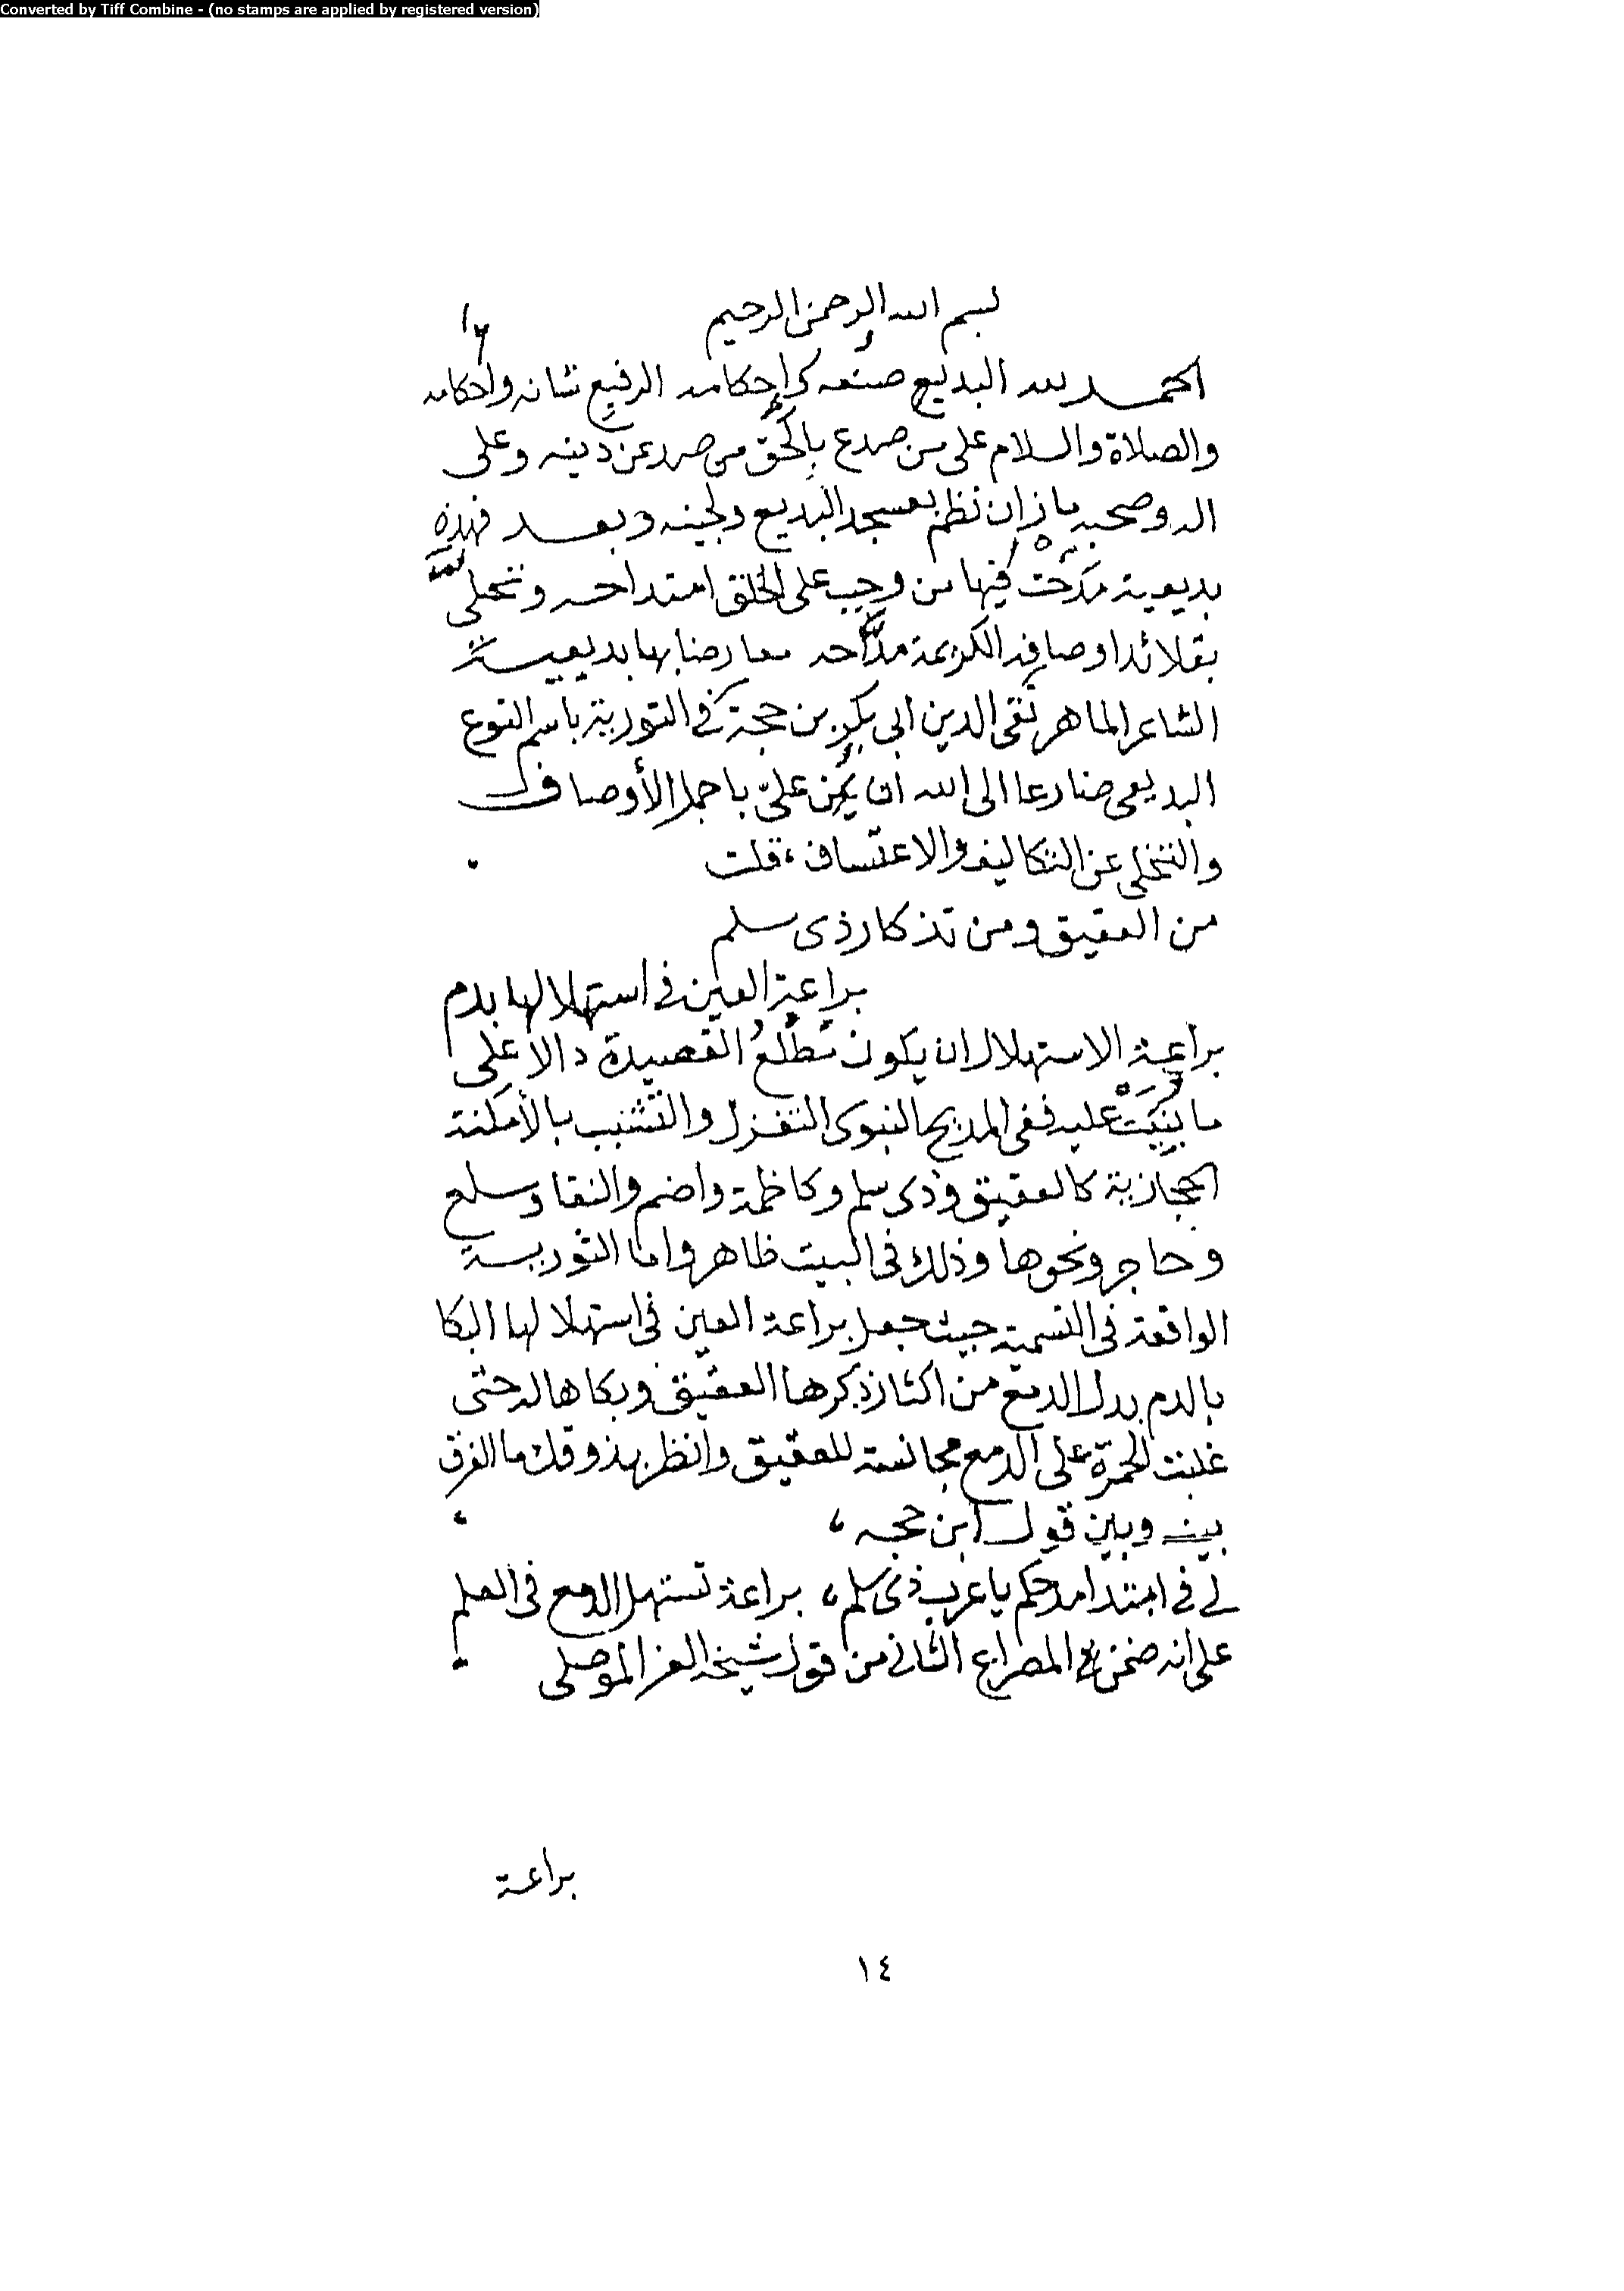 Converted by Tiff Combine - (no stamps are applied by registered version)
بسم الله الرحمن الرحيم
الحمد لله البديع صنعه واحكامه الرفيع شانه واحكامه
والصلاة والسلام على من صدع بالحق من صد عن دينه وعلى
اله وصحبه ما زان نظم بعسجد البديع ولجينه وبعد فهذه
بديعية مدحت فيها من وجب على الخلق امتداحه وتحلى
بقلائد اوصافه الكريمة مداحه معارضا بها بديعية
الشاعر الماهر تقي الدين ابي بكر بن حجة في التورية باسم النوع
البديعي ضارعا الى الله ان يمن علي باجمل الأوصاف
والتخلي عن التكاليف والاعتساف، قلت
من العقيق ومن تذكار ذي سلم
براعة العين في استهلالها بدم
براعة الاستهلال ان يكون مطلع القصيدة دالا على
ما بنيت عليه ففي المديح النبوي التغزل والتشبب بالأمكنة
الحجازية كالعقيق وذي سلم وكاظمة واضم والنقا وسلع
وحاجر ونحوها وذلك في البيت ظاهر واما التورية
الواقعة في التسمية حيث جعل براعة العين في استهلالها البكا
بالدم بدل الدمع من اكثار ذكرها العقيق وبكاها له حتى
غلبت الحمرة على الدمع مجانسة للعقيق وانظر بذوقك ما الفرق
بينه وبين قول ابن حجه،
لي في ابتدا مدحكم يا عرب ذي سلم، براعة تستهل الدمع في العلم
على انه ضمن المصراع الثاني من قول شيخه العز الموصلي
براعة
١٤